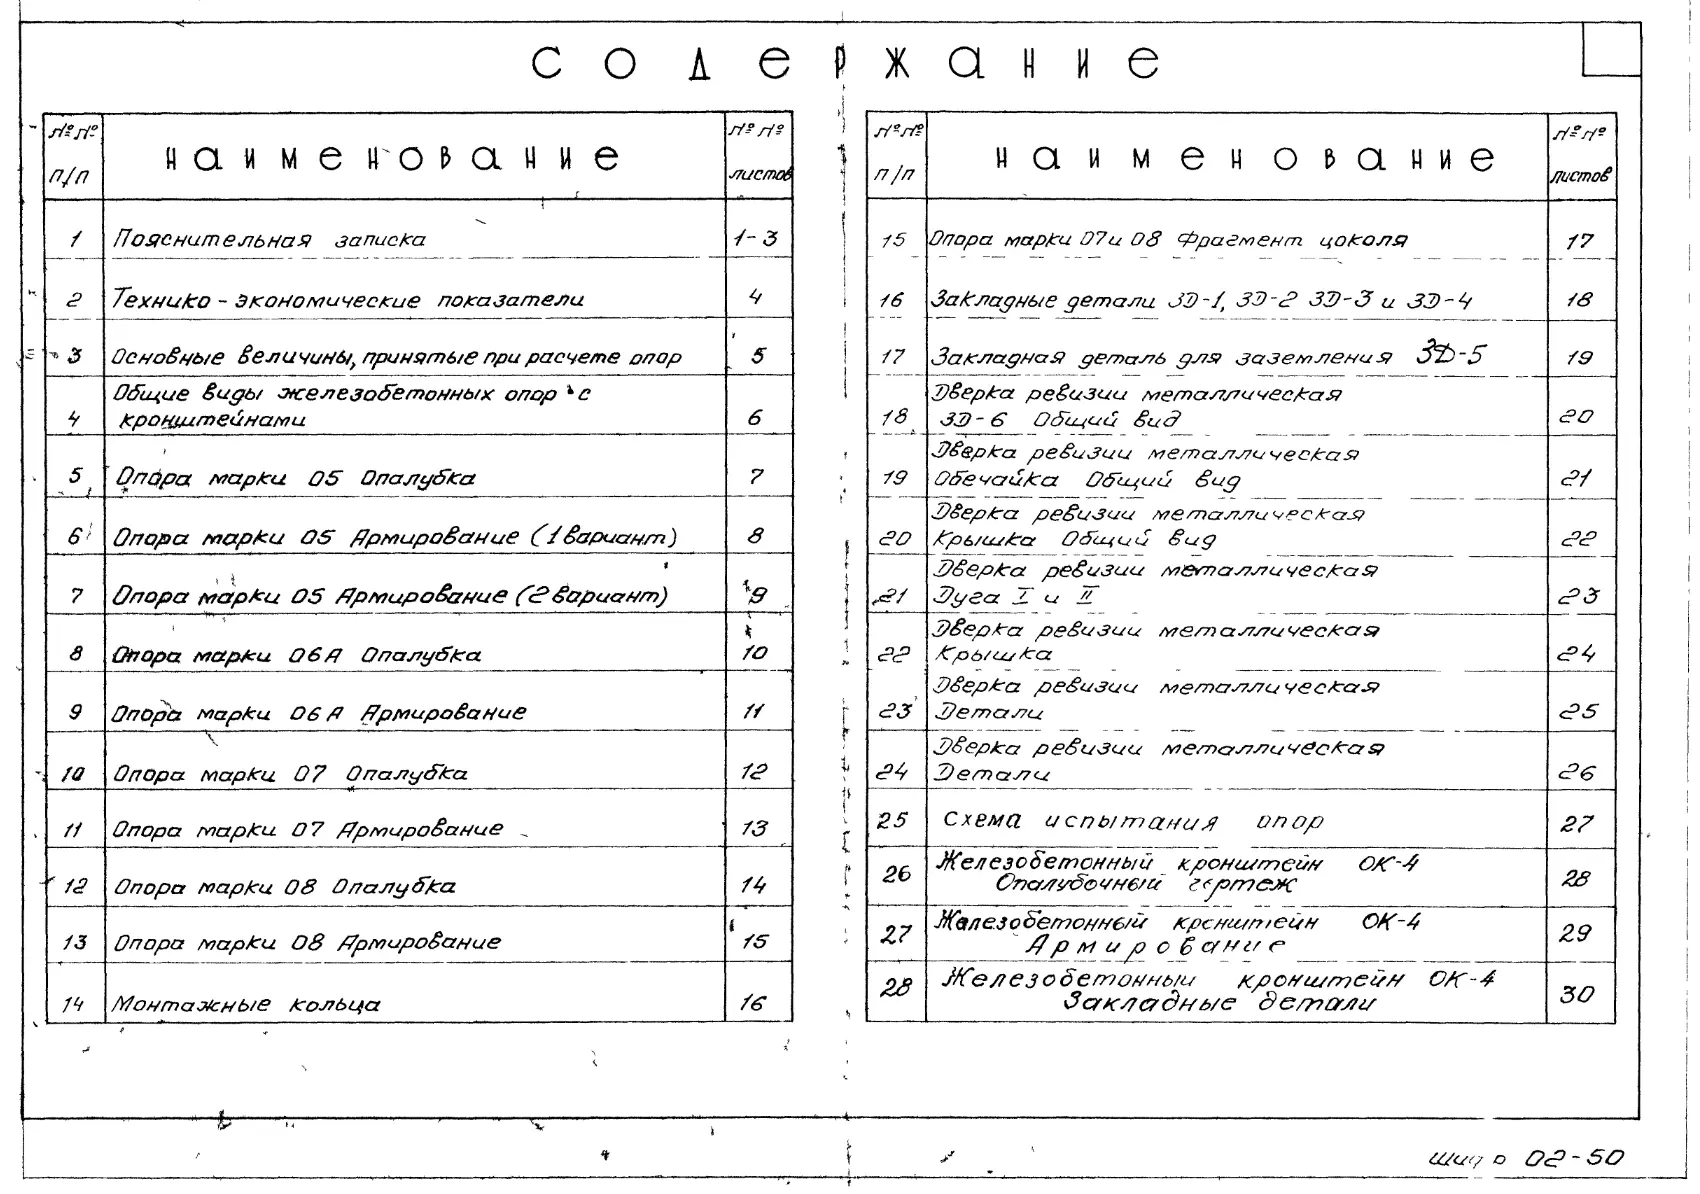 содержание
№№ п/п наименование №№ листов
1 Пояснительная записка 1-3
2 Технико-экономические показатели 4
3 Основные величины, принятые при расчете опор 5
Общие виды железобетонных опор с
4 кронштейнами 6
5 Опора марки 05 Опалубка 7
6 Опора марки 05 Армирование (1 вариант) 8
7 Опора марки 05 Армирование (2 вариант) 9
8 Опора марки 06А Опалубка 10
9 Опора марки 06А Армирование 11
10 Опора марки 07 Опалубка 12
11 Опора марки 07 Армирование 13
12 Опора марки 08 Опалубка 14
13 Опора марки 08 Армирование 15
14 Монтажные кольца 16
№№ п/п наименование №№ листов
15 Опора марки 07 и 08 Фрагмент цоколя 17
16 Закладные детали ЗД-1, ЗД-2 ЗД-3 и ЗД-4 18
17 Закладная деталь для заземления ЗД-5 19
Дверка ревизии металлическая
18 ЗД-6 Общий вид 20
Дверка ревизии металлическая
19 Обечайка Общий вид 21
Дверка ревизии металлическая
20 Крышка Общий вид 22
Дверка ревизии металлическая
21 Дуга I и II 23
Дверка ревизии металлическая
22 Крышка 24
Дверка ревизии металлическая
23 Детали 25
Дверка ревизии металлическая
24 Детали 26
25 Схема испытания опор 27
Железобетонный кронштейн ОК-4
26 Опалубочный чертеж 28
Железобетонный кронштейн ОК-4
27 Армирование 29
Железобетонный кронштейн ОК-4
28 Закладные детали 30
шифр 02-50